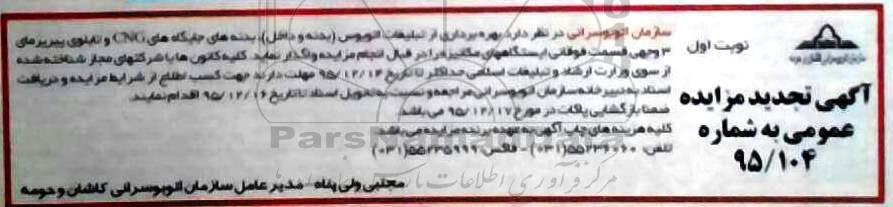 نوبت اول
آگهی تجدید مزایده
عمومی به شماره
۹۵/۱۰۴
سازمان اتوبوسرانی در نظر دارد بهره برداری از تبلیغات اتوبوس (بدنه و داخل)، بدنه های جایگاه های CNG و تابلوی پیربرهای
۳ وجهی قسمت فوقانی ایستگاههای مکانیزه را در قبال انجام مزایده واگذار نماید. کلیه کانون ها یا شرکتهای مجاز شناخته شده
از سوی وزارت ارشاد و تبلیغات اسلامی حداکثر تا تاریخ ۹۵/۱۲/۱۴ مهلت دارند جهت کسب اطلاع از شرایط مزایده و دریافت
اسناد به دبیرخانه سازمان اتوبوسرانی مراجعه و نسبت به تحویل اسناد تا تاریخ ۹۵/۱۲/۱۶ اقدام نمایند.
ضمنا بازگشایی پاکات در مورخ ۹۵/۱۲/۱۷ می باشد.
کلیه هزینه های چاپ آگهی به عهده برنده مزایده می باشد.
تلفن: ۵۵۲۳۶۰۶۰(۰۳۱) - فاکس: ۵۵۲۳۵۹۹۹(۰۳۱)
مجتبی ولی پناه - مدیر عامل سازمان اتوبوسرانی کاشان و حومه